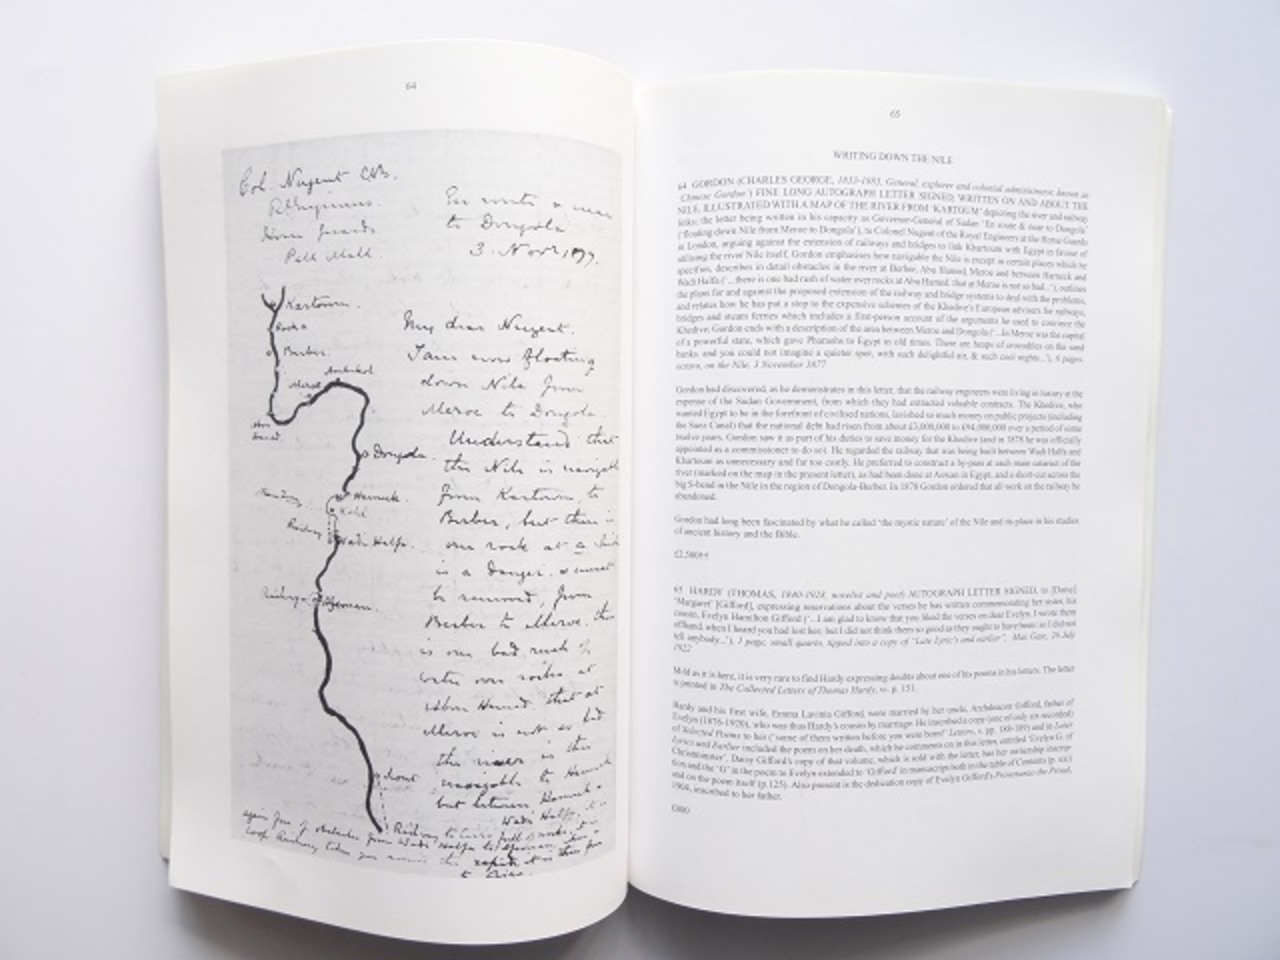 64
Col. Nugent CB.
R. Engineers.
Horse Guards
Pall Mall.
En route & near
to Dongola
3. Novr 1877.
Kartoum.
Berber.
Merowe
Abu
Hamed.
Dongola.
Hannek.
Railway
Wadi Halfa.
Railway
My dear Nugent.
I am now floating
down Nile from
Meroe to Dongola.
Understand that
the Nile is navigable
from Kartoum, to
Berber, but there is
one rock at a
is a danger. & must
be removed, from
Berber to Meroe. there
is one bad rush of
water over rocks at
Abou Hamed. that at
Meroe is not so bad
the river is then
navigable to Hannek
but between Hannek &
Wadi Halfa, it is
65
WRITING DOWN THE NILE
64 GORDON (CHARLES GEORGE, 1833-1885, General, explorer and colonial administrator, known as
'Chinese Gordon') FINE LONG AUTOGRAPH LETTER SIGNED, WRITTEN ON AND ABOUT THE
NILE, ILLUSTRATED WITH A MAP OF THE RIVER FROM 'KARTOUM' depicting the river and railway
links; the letter being written in his capacity as Governor-General of Sudan 'En route & near to Dongola'
('floating down Nile from Meroe to Dongola'), to Colonel Nugent of the Royal Engineers at the Horse Guards
in London, arguing against the extension of railways and bridges to link Khartoum with Egypt in favour of
utilising the river Nile itself, Gordon emphasises how navigable the Nile is except in certain places which he
specifies, describes in detail obstacles in the river at Berber, Abu Hamed, Meroe and between Hanneck and
Wadi Halfa ('...there is one bad rush of water over rocks at Abu Hamed, that at Meroe is not so bad...'), outlines
the plans for and against the proposed extension of the railway and bridge systems to deal with the problems,
and relates how he has put a stop to the expensive schemes of the Khedive's European advisors for railways,
bridges and steam ferries which includes a first-person account of the arguments he used to convince the
Khedive; Gordon ends with a description of the area between Meroe and Dongola ('...In Meroe was the capital
of a powerful state, which gave Pharaohs to Egypt in old times. There are heaps of crocodiles on the sand
banks, and you could not imagine a quieter spot, with such delightful air, & such cool nights...'), 6 pages,
octavo, on the Nile, 3 November 1877
Gordon had discovered, as he demonstrates in this letter, that the railway engineers were living in luxury at the
expense of the Sudan Government, from which they had extracted valuable contracts. The Khedive, who
wanted Egypt to be in the forefront of civilised nations, lavished so much money on public projects (including
the Suez Canal) that the national debt had risen from about £3,000,000 to £94,000,000 over a period of some
twelve years. Gordon saw it as part of his duties to save money for the Khedive (and in 1878 he was officially
appointed as a commissioner to do so). He regarded the railway that was being built between Wadi Halfa and
Khartoum as unnecessary and far too costly. He preferred to construct a by-pass at each main cataract of the
river (marked on the map in the present letter), as had been done at Aswan in Egypt, and a short-cut across the
big S-bend in the Nile in the region of Dongola-Berber. In 1878 Gordon ordered that all work on the railway be
abandoned.
Gordon had long been fascinated by what he called 'the mystic nature' of the Nile and its place in his studies
of ancient history and the Bible.
£2,500++
65 HARDY (THOMAS, 1840-1928, novelist and poet) AUTOGRAPH LETTER SIGNED, to [Daisy]
'Margaret' [Gifford], expressing reservations about the verses he has written commemorating her sister, his
cousin, Evelyn Hamilton Gifford ('...I am glad to know that you liked the verses on dear Evelyn. I wrote them
offhand, when I heard you had lost her; but I did not think them so good as they ought to have been: so I did not
tell anybody...'), 1 page, small quarto, tipped into a copy of "Late Lyrics and earlier", Max Gate, 26 July
1922
Mild as it is here, it is very rare to find Hardy expressing doubts about one of his poems in his letters. The letter
is printed in The Collected Letters of Thomas Hardy, vi. p. 151.
Hardy and his first wife, Emma Lavinia Gifford, were married by her uncle, Archdeacon Gifford, father of
Evelyn (1876-1920), who was thus Hardy's cousin by marriage. He inscribed a copy (one of only six recorded)
of Selected Poems to her ('some of them written before you were born' Letters, v, pp. 188-189) and in Later
Lyrics and Earlier included the poem on her death, which he comments on in this letter, entitled 'Evelyn G. of
Christminster'. Daisy Gifford's copy of that volume, which is sold with the letter, has her ownership inscrip-
tion and the 'G' in the poem to Evelyn extended to 'Gifford' in manuscript both in the table of Contents (p. xxi)
and on the poem itself (p.125). Also present is the dedication copy of Evelyn Gifford's Provenance the Proud,
1904, inscribed to her father.